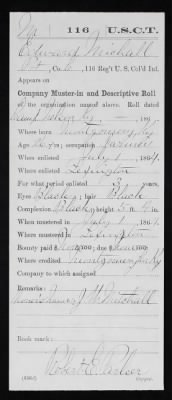 M | 116 | U.S.C.T.
Edward Mitchell
Pt., Co. , 116 Reg't U. S. Col'd Inf.
Appears on
Company Muster-in and Descriptive Roll
of the organization named above. Roll dated
Camp Nelson Ky, 186 .
Where born Montgomery, Ky
Age y'rs; occupation Farmer
When enlisted July 1, 1864.
Where enlisted Lexington
For what period enlisted 3 years.
Eyes Black; hair Black
Complexion Black; height 5 ft. in.
When mustered in July 1, 1864.
Where mustered in Lexington
Bounty paid $ ; due $
Where credited Montgomery Co Ky
Company to which assigned
Remarks:
Owner's name J Mitchell
Book mark:
Copyist.